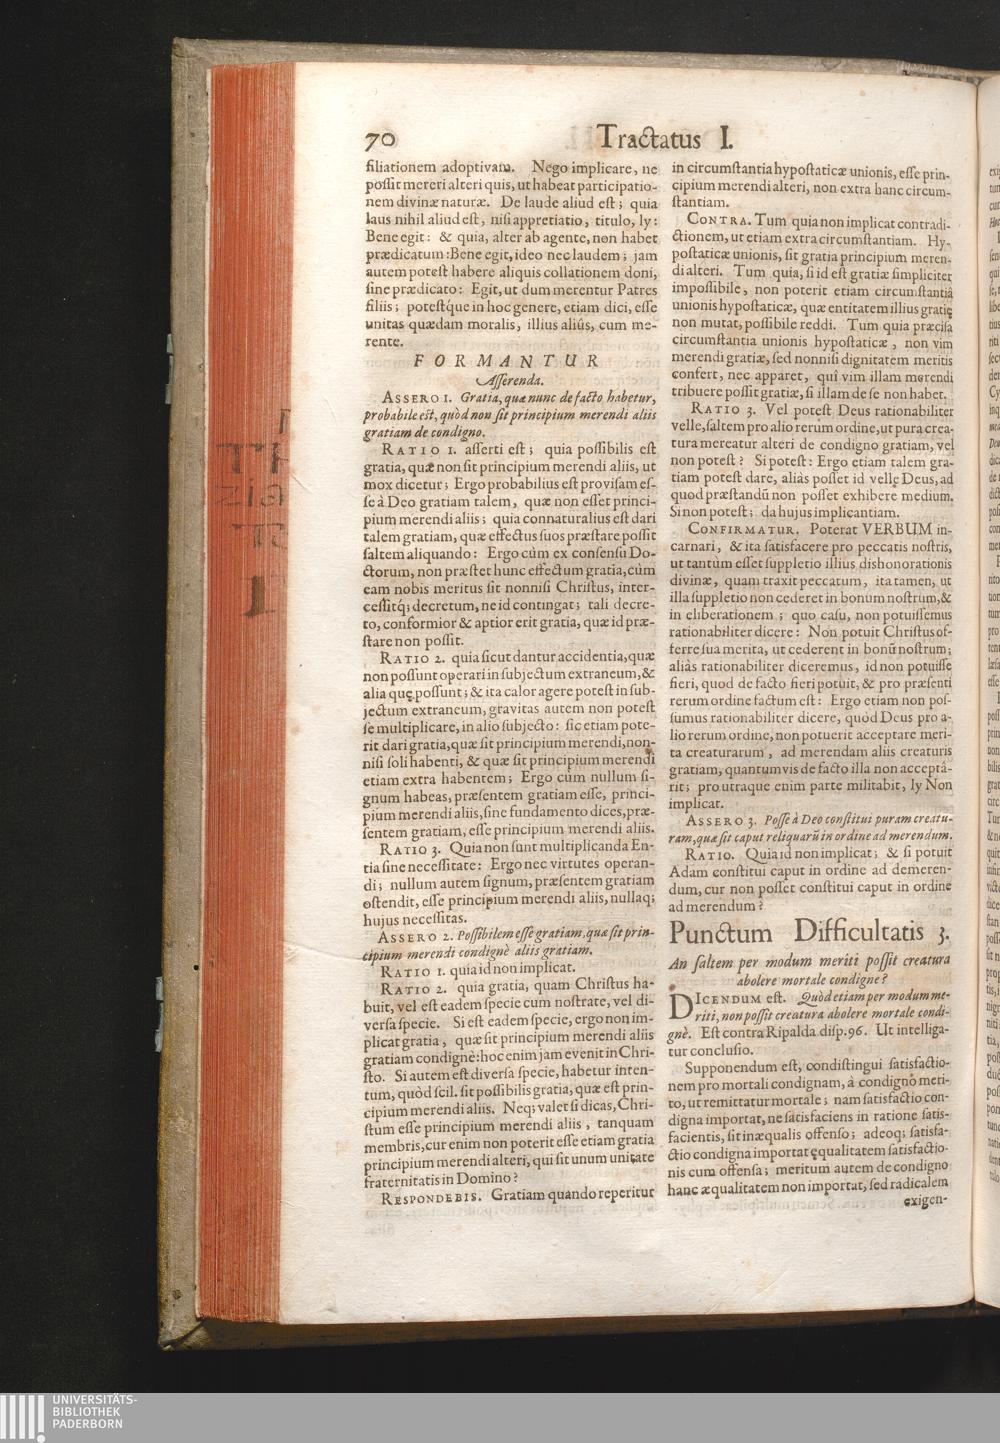 70
Tractatus I.
filiationem adoptivam. Nego implicare, ne
possit mereri alteri quis, ut habeat participatio-
nem divinæ naturæ. De laude aliud est; quia
laus nihil aliud est, nisi appretiatio, titulo, ly:
Bene egit: & quia, alter ab agente, non habet
prædicatum: Bene egit, ideo nec laudem; jam
autem potest habere aliquis collationem doni,
sine prædicato: Egit, ut dum merentur Patres
filiis; potestq́ue in hoc genere, etiam dici, esse
unitas quædam moralis, illius aliûs, cum me-
rente.
FORMANTUR
Asserenda.
ASSERO 1. Gratia, quæ nunc de facto habetur,
probabile est, quòd non sit principium merendi aliis
gratiam de condigno.
RATIO 1. asserti est; quia possibilis est
gratia, quæ non sit principium merendi aliis, ut
mox dicetur; Ergo probabilius est provisam es-
se à Deo gratiam talem, quæ non esset princi-
pium merendi aliis; quia connaturalius est dari
talem gratiam, quæ effectus suos præstare possit
saltem aliquando: Ergo cùm ex consensu Do-
ctorum, non præstet hunc effectum gratia, cùm
eam nobis meritus sit nonnisi Christus, inter-
cessitq́; decretum, ne id contingat; tali decre-
to, conformior & aptior erit gratia, quæ id præ-
stare non possit.
RATIO 2. quia sicut dantur accidentia, quæ
non possunt operari in subjectum extraneum, &
alia quę possunt; & ita calor agere potest in sub-
jectum extraneum, gravitas autem non potest
se multiplicare, in alio subjecto: sic etiam pote-
rit dari gratia, quæ sit principium merendi, non-
nisi soli habenti, & quæ sit principium merendi
etiam extra habentem; Ergo cùm nullum si-
gnum habeas, præsentem gratiam esse, princi-
pium merendi aliis, sine fundamento dices, præ-
sentem gratiam, esse principium merendi aliis.
RATIO 3. Quia non sunt multiplicanda En-
tia sine necessitate: Ergo nec virtutes operan-
di; nullum autem signum, præsentem gratiam
ostendit, esse principium merendi aliis, nullaq;
hujus necessitas.
ASSERO 2. Possibilem esse gratiam, quæ sit prin-
cipium merendi condignè aliis gratiam.
RATIO 1. quia id non implicat.
RATIO 2. quia gratia, quam Christus ha-
buit, vel est eadem specie cum nostrate, vel di-
versa specie. Si est eadem specie, ergo non im-
plicat gratia, quæ sit principium merendi aliis
gratiam condignè: hoc enim jam evenit in Chri-
sto. Si autem est diversa specie, habetur inten-
tum, quòd scil. sit possibilis gratia, quæ est prin-
cipium merendi aliis. Neq; valet si dicas, Chri-
stum esse principium merendi aliis, tanquam
membris, cur enim non poterit esse etiam gratia
principium merendi alteri, qui sit unum unitate
fraternitatis in Domino?
RESPONDEBIS. Gratiam quando reperitur
in circumstantia hypostaticæ unionis, esse prin-
cipium merendi alteri, non extra hanc circum-
stantiam.
CONTRA. Tum quia non implicat contradi-
ctionem, ut etiam extra circumstantiam. Hy-
postaticæ unionis, sit gratia principium meren-
di alteri. Tum quia, si id est gratiæ simpliciter
impossibile, non poterit etiam circumstantiâ
unionis hypostaticæ, quæ entitatem illius gratię
non mutat, possibile reddi. Tum quia præcisa
circumstantia unionis hypostaticæ, non vim
merendi gratiæ, sed nonnisi dignitatem meritis
confert, nec apparet, quî vim illam merendi
tribuere possit gratiæ, si illam de se non habet.
RATIO 3. Vel potest Deus rationabiliter
velle, saltem pro alio rerum ordine, ut pura crea-
tura mereatur alteri de condigno gratiam, vel
non potest? Si potest: Ergo etiam talem gra-
tiam potest dare, aliàs posset id velle Deus, ad
quod præstandũ non posset exhibere medium.
Si non potest; da hujus implicantiam.
CONFIRMATUR. Poterat VERBUM in-
carnari, & ita satisfacere pro peccatis nostris,
ut tantùm esset suppletio illius dishonorationis
divinæ, quam traxit peccatum, ita tamen, ut
illa suppletio non cederet in bonum nostrum, &
in eliberationem; quo casu, non potuissemus
rationabiliter dicere: Non potuit Christus of-
ferre sua merita, ut cederent in bonũ nostrum;
aliàs rationabiliter diceremus, id non potuisse
fieri, quod de facto fieri potuit, & pro præsenti
rerum ordine factum est: Ergo etiam non pos-
sumus rationabiliter dicere, quòd Deus pro a-
lio rerum ordine, non potuerit acceptare meri-
ta creaturarum, ad merendam aliis creaturis
gratiam, quantumvis de facto illa non acceptâ-
rit; pro utraque enim parte militabit, ly Non
implicat.
ASSERO 3. Posse à Deo constitui puram creatu-
ram, quæ sit caput reliquarũ in ordine ad merendum.
RATIO. Quia id non implicat; & si potuit
Adam constitui caput in ordine ad demeren-
dum, cur non posset constitui caput in ordine
ad merendum?
Punctum Difficultatis 3.
An saltem per modum meriti possit creatura
abolere mortale condigne?
DICENDUM est. Quòd etiam per modum me-
riti, non possit creatura abolere mortale condi-
gnè. Est contra Ripalda disp. 96. Ut intelliga-
tur conclusio.
Supponendum est, condistingui satisfactio-
nem pro mortali condignam, à condigno meri-
to, ut remittatur mortale; nam satisfactio con-
digna importat, ne satisfaciens in ratione satis-
facientis, sit inæqualis offenso; adeoq; satisfa-
ctio condigna importat ęqualitatem satisfactio-
nis cum offensa; meritum autem de condigno
hanc æqualitatem non importat, sed radicalem
exigen-
UNIVERSITÄTS-
BIBLIOTHEK
PADERBORN